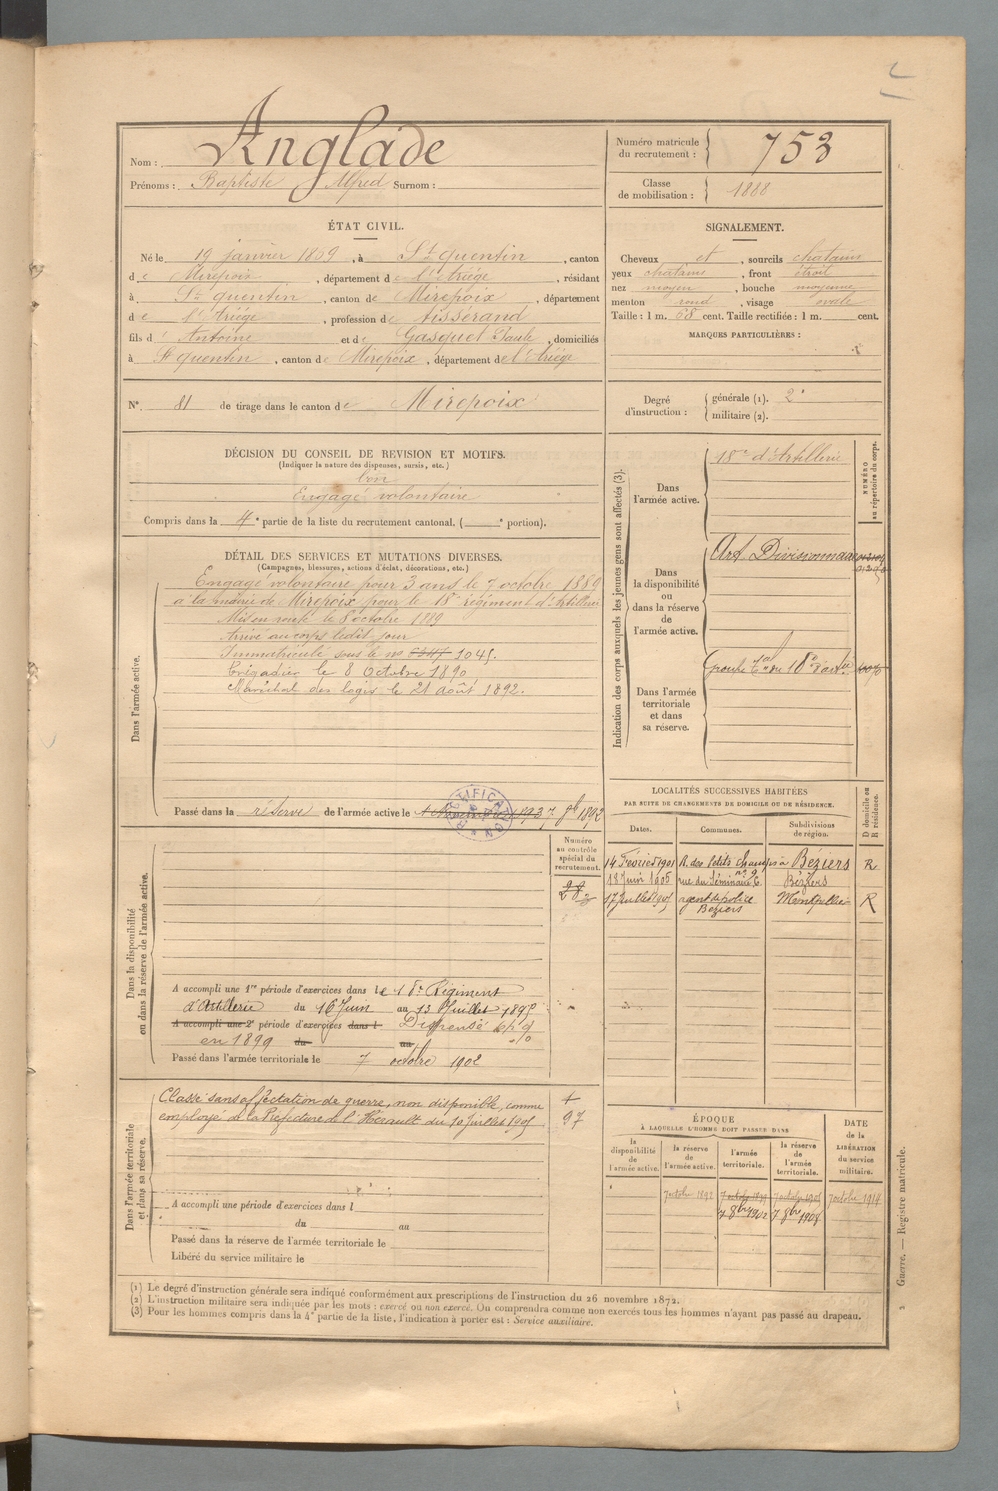 Nom : Anglade
Prénoms : Baptiste Alfred Surnom :
Numéro matricule du recrutement : 753
Classe de mobilisation : 1888
ÉTAT CIVIL.
Né le 19 janvier 1869, à St quentin, canton
de Mirepoix, département de l'Ariége, résidant
à St quentin, canton de Mirepoix, département
de l'Ariége, profession de tisserand
fils d' Antoine et de Gasquet Paule, domiciliés
à St quentin, canton de Mirepoix, département de l'Ariége
N° 81 de tirage dans le canton de Mirepoix
SIGNALEMENT.
Cheveux et, sourcils chatains
yeux chatains, front étroit
nez moyen, bouche moyenne
menton rond, visage ovale
Taille : 1 m. 68 cent. Taille rectifiée : 1 m. cent.
MARQUES PARTICULIÈRES :
Degré d'instruction : générale (1). 2
militaire (2).
DÉCISION DU CONSEIL DE REVISION ET MOTIFS.
(Indiquer la nature des dispenses, sursis, etc.)
bon
Engagé volontaire
Compris dans la 4e partie de la liste du recrutement cantonal. ( e portion).
DÉTAIL DES SERVICES ET MUTATIONS DIVERSES.
(Campagnes, blessures, actions d'éclat, décorations, etc.)
Dans l'armée active.
Engagé volontaire pour 3 ans le 7 octobre 1889
à la mairie de Mirepoix pour le 18e régiment d'Artillerie
Mis en route le 8 octobre 1889
Arrivé au corps ledit jour
Immatriculé sous le no 1045.
Brigadier le 8 Octobre 1890
Maréchal des logis le 21 août 1892.
Passé dans la réserve de l'armée active le 7 8bre 1892
RECTIFICATION
Indication des corps auxquels les jeunes gens sont affectés (3).
NUMÉRO au répertoire du corps.
Dans l'armée active.
18e d'Artillerie
Dans la disponibilité ou dans la réserve de l'armée active.
Art. Divisionnaire
Dans l'armée territoriale et dans sa réserve.
Groupe Tal du 18e d'artie
LOCALITÉS SUCCESSIVES HABITÉES
PAR SUITE DE CHANGEMENTS DE DOMICILE OU DE RÉSIDENCE.
D domicile ou R résidence.
Dates. Communes. Subdivisions de région.
14 Février 1901 R. des Petits Champs à Béziers R
n° 9
18 Juin 1905 rue du Séminaire 6. Béziers
17 Juillet 1905 agent de police Montpellier R
Béziers
Dans la disponibilité ou dans la réserve de l'armée active.
Numéro au contrôle spécial du recrutement.
A accompli une 1re période d'exercices dans le 18e Régiment
d'Artillerie du 16 Juin au 13 Juillet 1895
A accompli une 2e période d'exercices dans l Dispensé
en 1899 du au
Passé dans l'armée territoriale le 7 octobre 1902
Dans l'armée territoriale et dans sa réserve.
Classé sans affectation de guerre, non disponible, comme
employé de la Préfecture de l'Hérault du 10 juillet 1905
97
A accompli une période d'exercices dans l
du au
Passé dans la réserve de l'armée territoriale le
Libéré du service militaire le
ÉPOQUE
À LAQUELLE L'HOMME DOIT PASSER DANS
la disponibilité de l'armée active. la réserve de l'armée active. l'armée territoriale. la réserve de l'armée territoriale.
DATE de la LIBÉRATION du service militaire.
7 octobre 1892 7 octobre 1899 7 octobre 1905 7 octobre 1914
7 8bre 1902 7 8bre 1908
(1) Le degré d'instruction générale sera indiqué conformément aux prescriptions de l'instruction du 26 novembre 1872.
(2) L'instruction militaire sera indiquée par les mots : exercé ou non exercé. On comprendra comme non exercés tous les hommes n'ayant pas passé au drapeau.
(3) Pour les hommes compris dans la 4e partie de la liste, l'indication à porter est : Service auxiliaire.
Guerre. — Registre matricule.